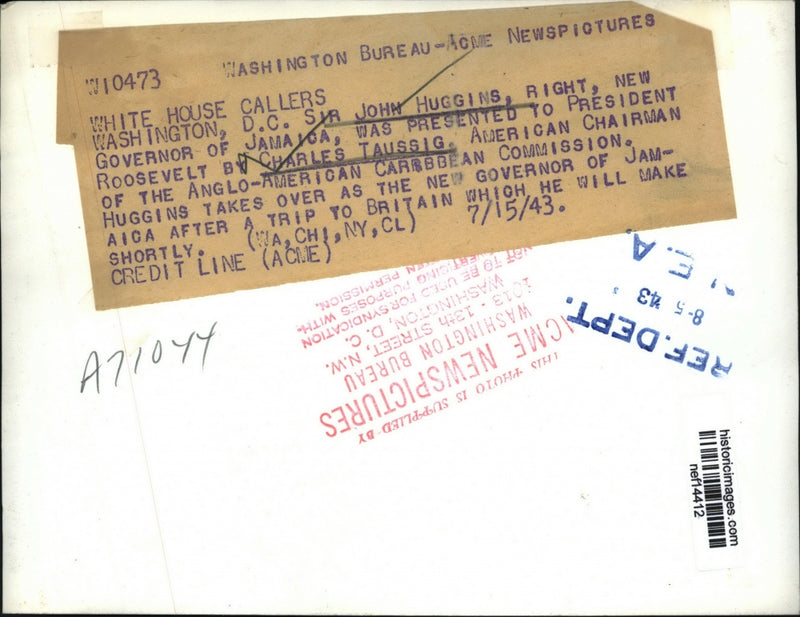 W10473 Washington Bureau-Acme Newspictures
WHITE HOUSE CALLERS
WASHINGTON, D.C. SIR JOHN HUGGINS, RIGHT, NEW
GOVERNOR OF JAMAICA, WAS PRESENTED TO PRESIDENT
ROOSEVELT BY CHARLES TAUSSIG, AMERICAN CHAIRMAN
OF THE ANGLO-AMERICAN CARIBBEAN COMMISSION.
HUGGINS TAKES OVER AS THE NEW GOVERNOR OF JAM-
AICA AFTER A TRIP TO BRITAIN WHICH HE WILL MAKE
SHORTLY. (WA,CHI,NY,CL) 7/15/43.
CREDIT LINE (ACME)
A71044
THIS PHOTO IS SUPPLIED BY
ACME NEWSPICTURES
WASHINGTON BUREAU
1013 - 13th STREET, N.W.
WASHINGTON, D. C.
NOT TO BE USED FOR SYNDICATION
OR ADVERTISING PURPOSES WITH-
PERMISSION.
REF. DEPT.
8-5 '43
N.E.A.
historicimages.com
nef14412